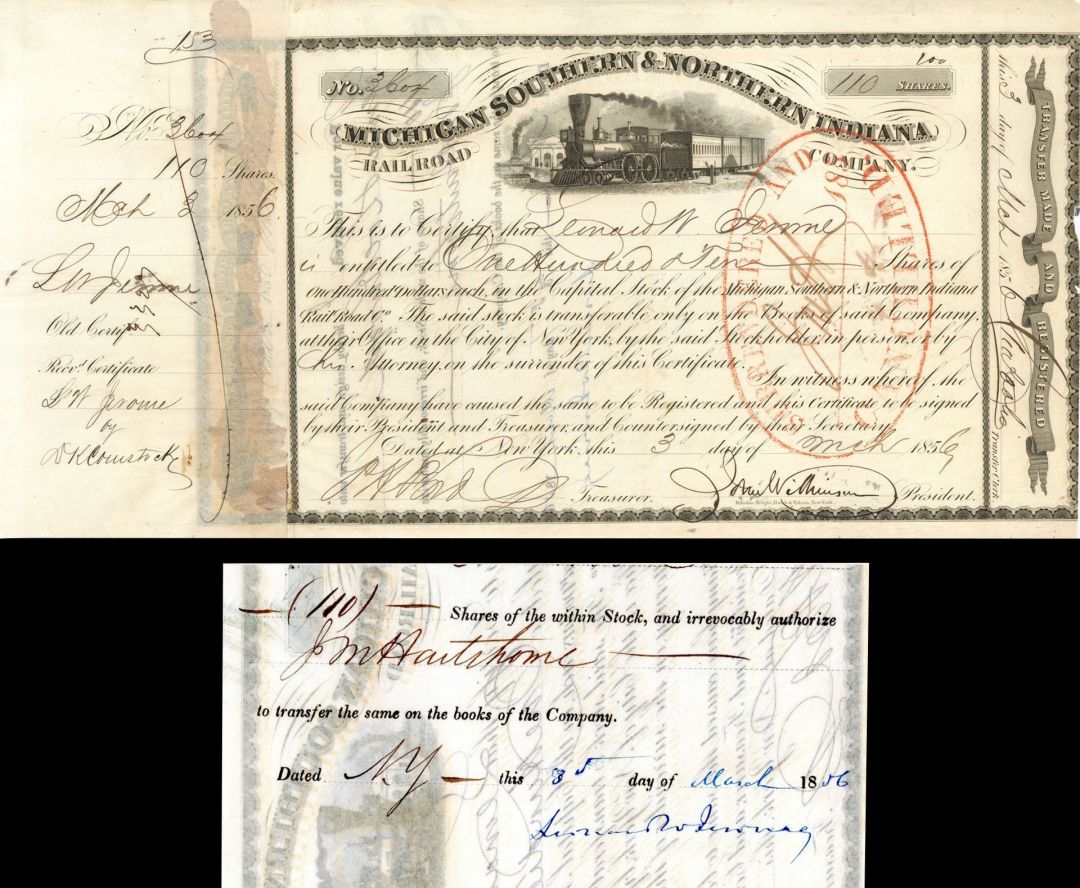 153
No. 3604
110 Shares.
Mch 3 1856
L W Jerome
Old Certific
Recv. Certificate
L W Jerome
by
D K Comstock
No. 3604
100
110 SHARES.
MICHIGAN SOUTHERN & NORTHERN INDIANA
RAILROAD COMPANY.
This is to Certify that Leonard W. Jerome
is entitled to One Hundred & Ten Shares of
One Hundred Dollars each, in the Capital Stock of the Michigan Southern & Northern Indiana
Rail Road Co. The said stock is transferable only on the Books of said Company,
at their Office in the City of New York, by the said Stockholder, in person, or by
his Attorney, on the surrender of this Certificate. In witness whereof the
said Company have caused the same to be Registered and this Certificate to be signed
by their President and Treasurer, and Countersigned by their Secretary
Dated at New York, this 3 day of Mch 1856
Treasurer. John Wilkinson President.
TRANSFER MADE AND REGISTERED
this 3 day of Mch 1856
Transfer Clerk
SURRENDERED AND CANCELLED
(110) Shares of the within Stock, and irrevocably authorize
J M Hartshorne
to transfer the same on the books of the Company.
Dated N.Y this 3d day of March 1856
Leonard W Jerome